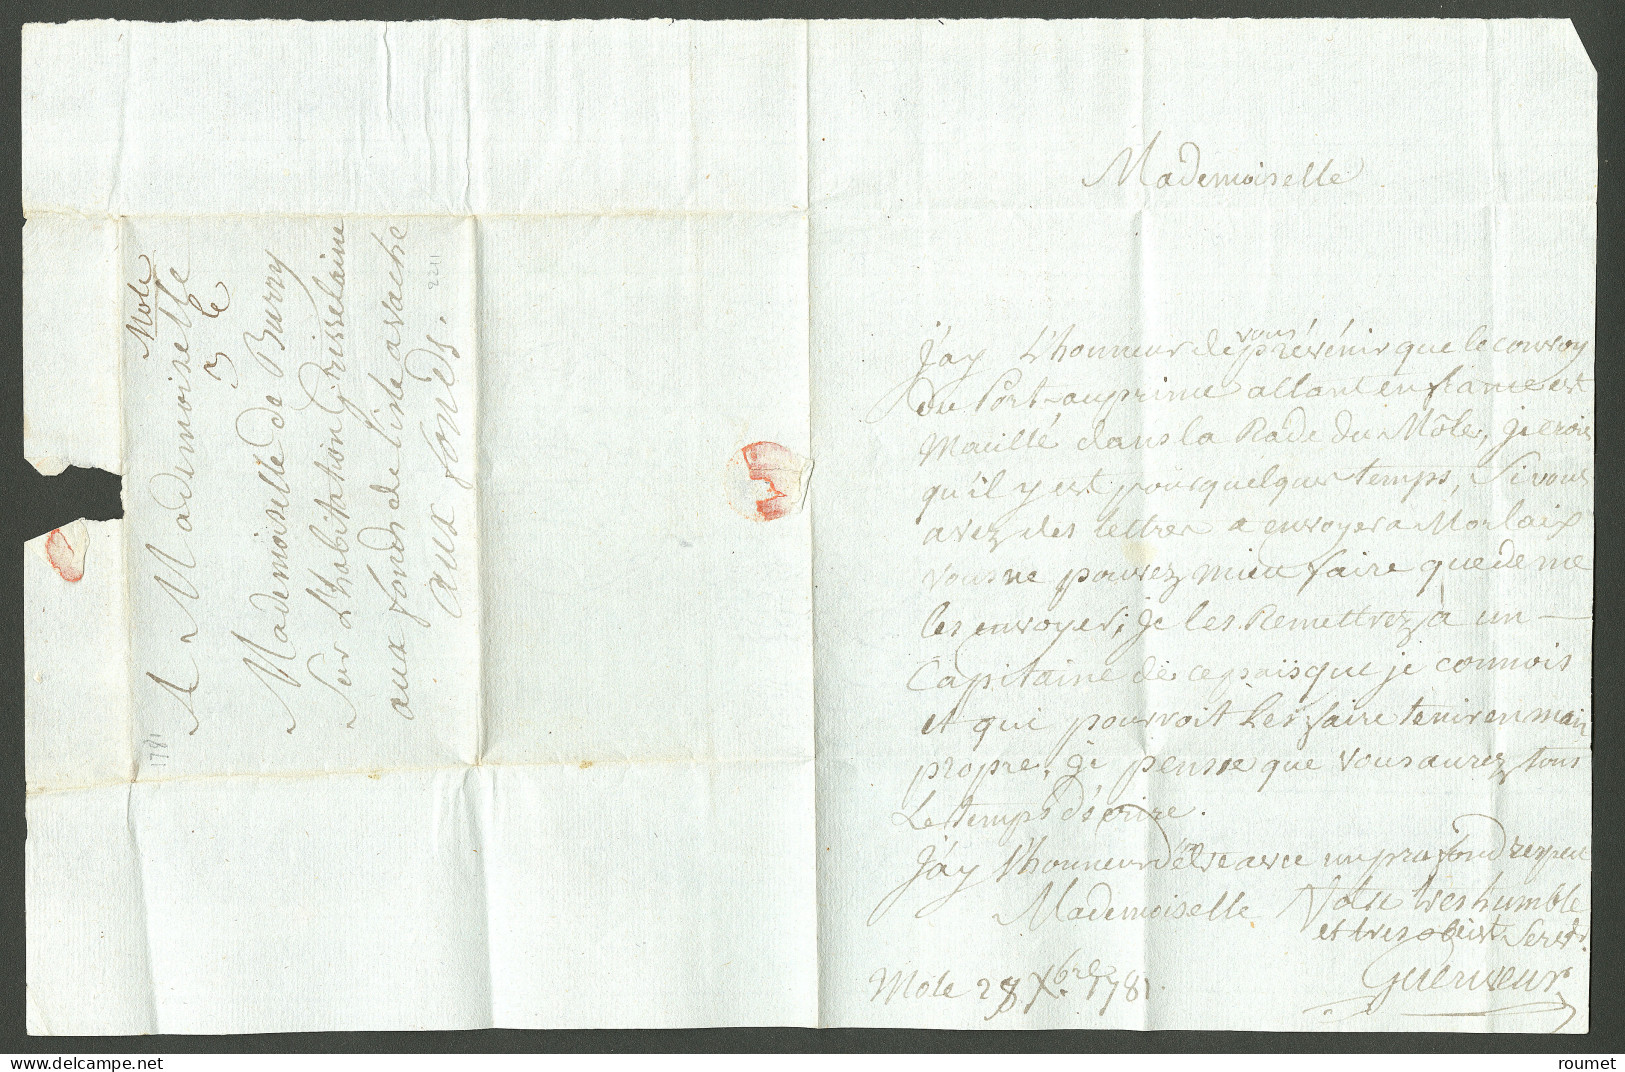 Mole
A Mademoiselle
Mademoiselle de Burry
Sur L'habitation Grisselaine
aux fonds de l'isle avache
aux fonds.
1781
Mademoiselle
J'ay L'honneur de vous prévénir que le convoy
du Port-auprince allant en france est
Mouillé dans la Rade du Môle, je crois
qu'il y est pour quelques temps, Si vous
avez des lettres a envoyer a Morlaix
vous ne pouvez mieu faire que de me
les envoyer, je les Remettrez à un
Capitaine de ce païs que je connois
et qui pourroit les faire tenir en main
propre, je pense que vous aurez tous
Le temps d'écrire.
J'ay l'honneur d'être avec un profond respect
Mademoiselle Votre tres humble
et tres obeist Servr.
Guerveur
Mole 28 Xbre 1781.
roumet